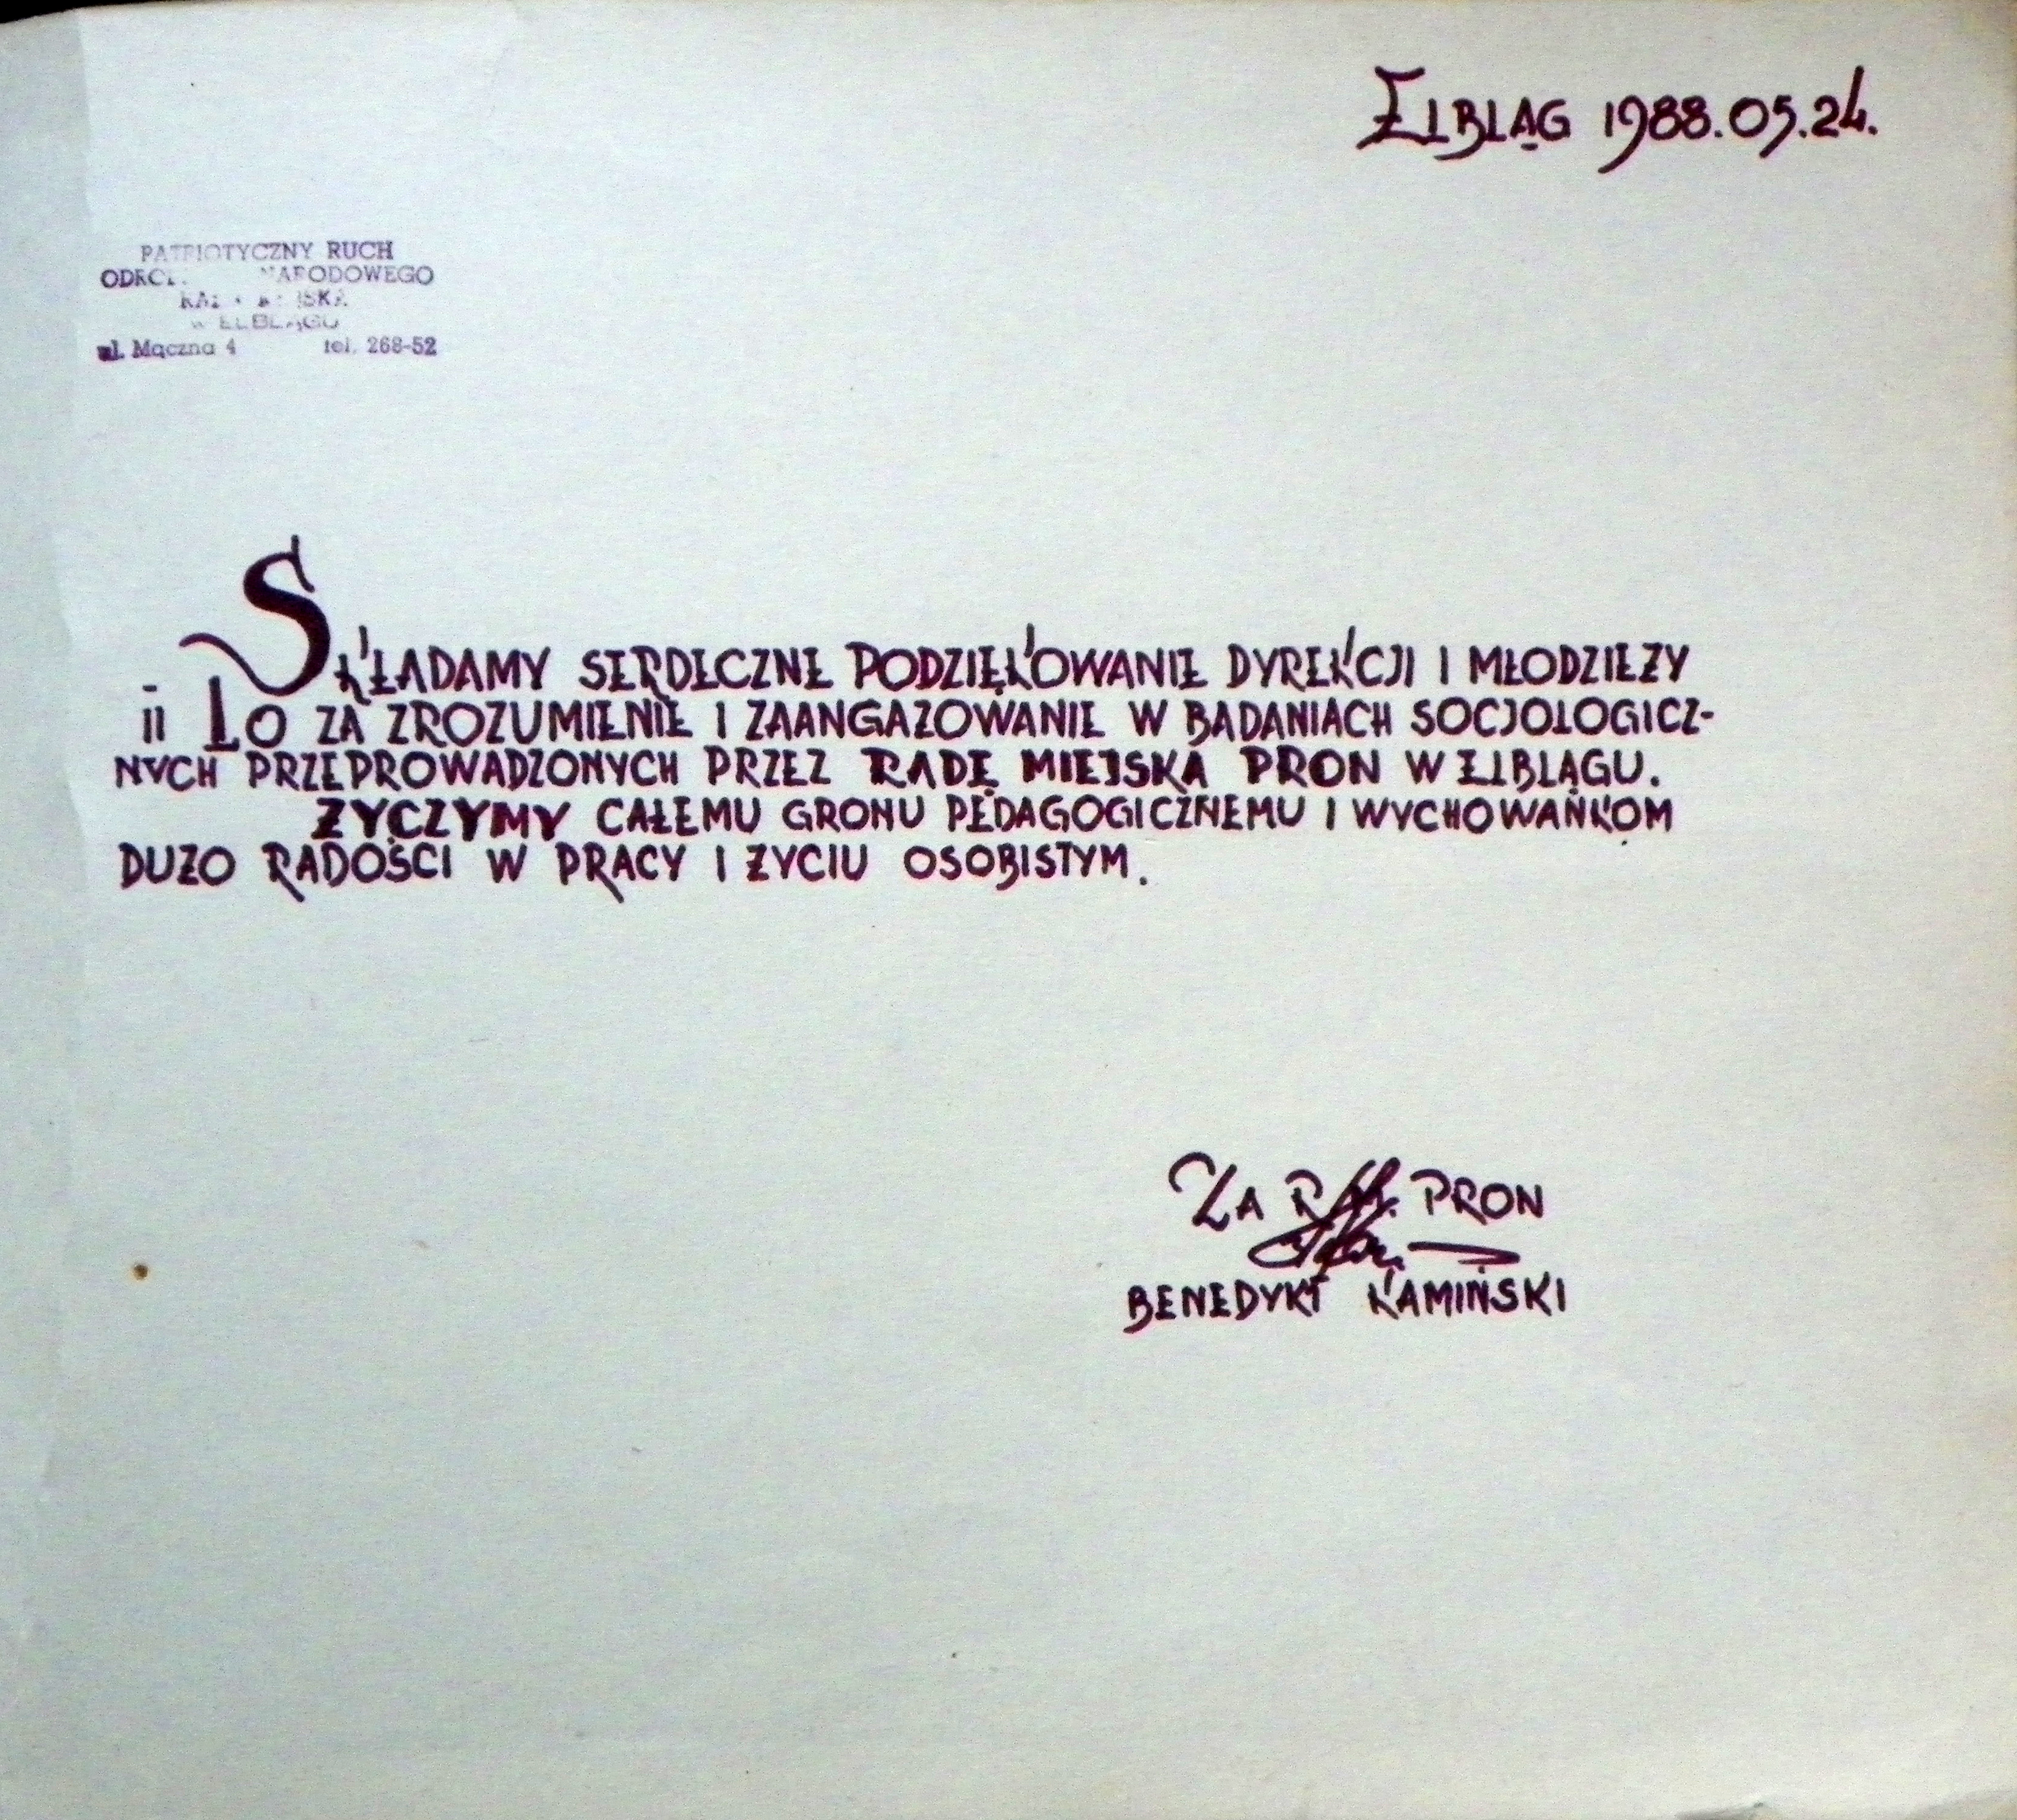 ELBLĄG 1988.05.24.
PATRIOTYCZNY RUCH
NARODOWEGO
W ELBLĄGU
ul. Mączna 4 tel. 268-52
SKŁADAMY SERDECZNE PODZIĘKOWANIE DYREKCJI I MŁODZIEŻY
II LO ZA ZROZUMIENIE I ZAANGAŻOWANIE W BADANIACH SOCJOLOGICZ-
NYCH PRZEPROWADZONYCH PRZEZ RADĘ MIEJSKĄ PRON W ELBLĄGU.
ŻYCZYMY CAŁEMU GRONU PEDAGOGICZNEMU I WYCHOWANKOM
DUŻO RADOŚCI W PRACY I ŻYCIU OSOBISTYM.
ZA PRON
BENEDYKT KAMIŃSKI